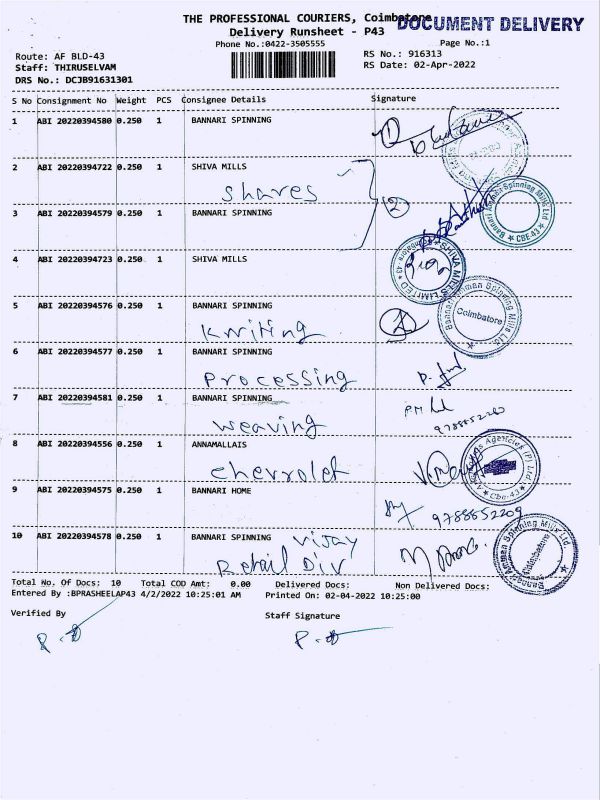 THE PROFESSIONAL COURIERS, Coimbatore
DOCUMENT DELIVERY
Delivery Runsheet - P43
Phone No.:0422-3505555
Page No.:1
Route: AF BLD-43
RS No.: 916313
Staff: THIRUSELVAM
RS Date: 02-Apr-2022
DRS No.: DCJB91631301
S No Consignment No Weight PCS Consignee Details Signature
1 ABI 20220394580 0.250 1 BANNARI SPINNING
2 ABI 20220394722 0.250 1 SHIVA MILLS
shares
3 ABI 20220394579 0.250 1 BANNARI SPINNING
2
Bannari Amman Spinning Mills Ltd. CBE-43
4 ABI 20220394723 0.250 1 SHIVA MILLS
SHIVA MILLS LIMITED
5 ABI 20220394576 0.250 1 BANNARI SPINNING
Bannari Amman Spinning Mills Ltd. Coimbatore
kwiting
6 ABI 20220394577 0.250 1 BANNARI SPINNING
Processing
7 ABI 20220394581 0.250 1 BANNARI SPINNING
weaving
8 ABI 20220394556 0.250 1 ANNAMALLAIS
chevrolet
Agencies (P) Ltd. Cbe-43
9 ABI 20220394575 0.250 1 BANNARI HOME
9788652209
10 ABI 20220394578 0.250 1 BANNARI SPINNING vijay
Retail Div
Bannari Amman Spinning Mills Ltd. Coimbatore
Total No. Of Docs: 10 Total COD Amt: 0.00 Delivered Docs: Non Delivered Docs:
Entered By :BPRASHEELAP43 4/2/2022 10:25:01 AM Printed On: 02-04-2022 10:25:00
Verified By Staff Signature